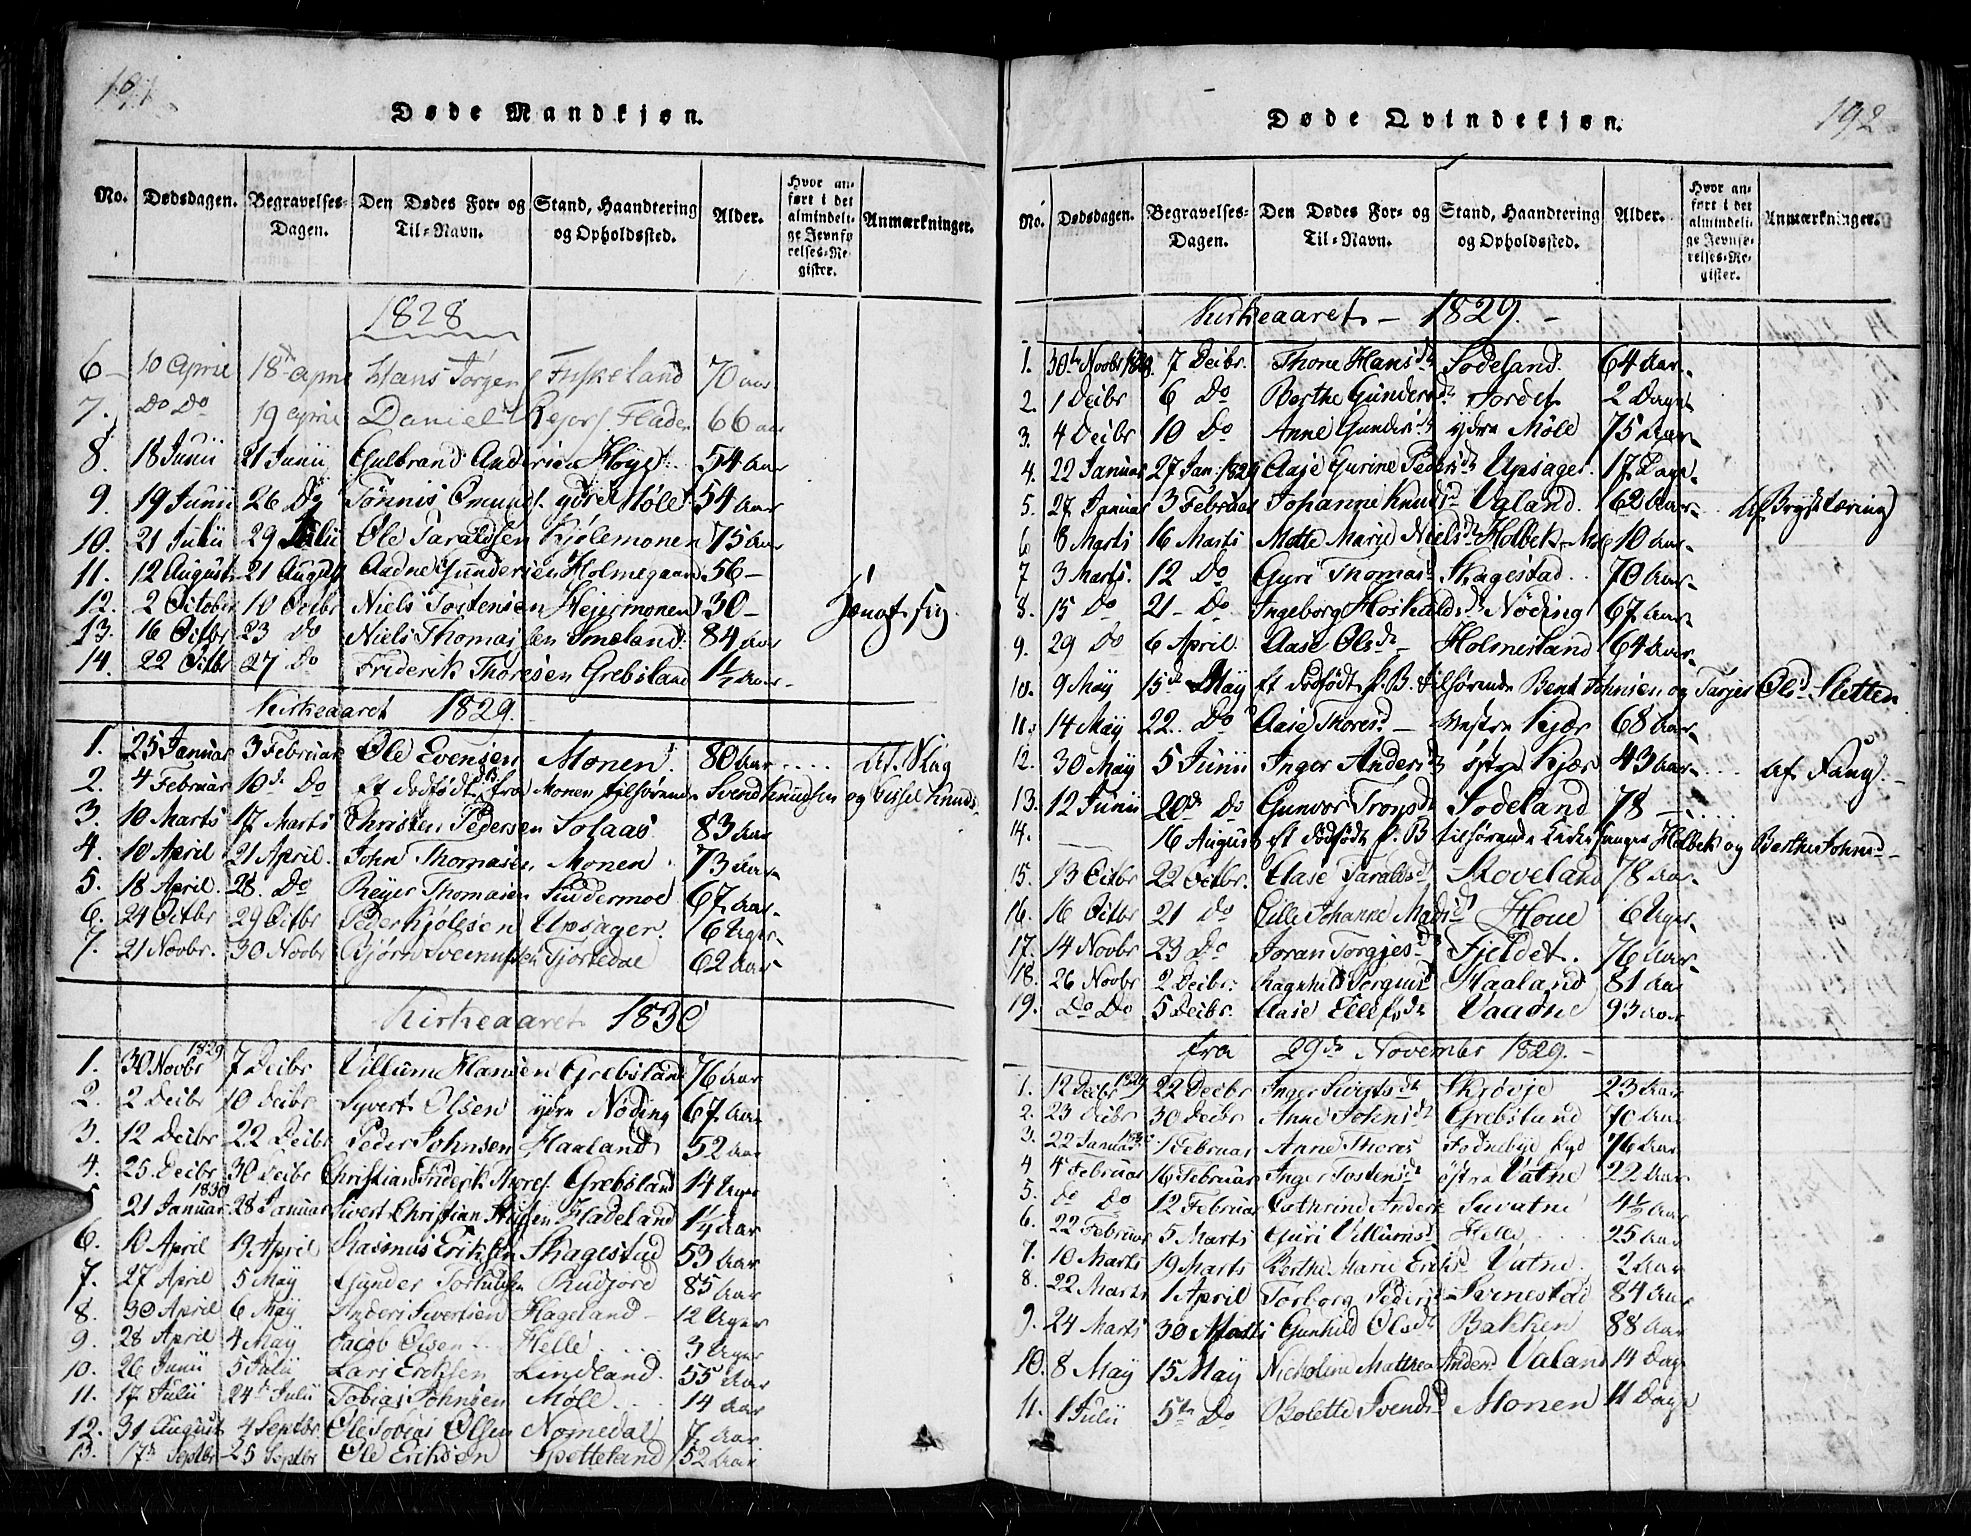 191
Døde Mandkjøn.
No. Dødsdagen. Begravelses-Dagen. Den Dødes For- og Til-Navn. Stand, Haandtering og Opholdssted. Alder. Hvor anført i det almindelige Jevnførelses-Register. Anmærkninger.
1828
6 10 April 18de April Hans Jörgens Fuskeland 70 aar
7. Do Do 19 April Daniel Fladen 66 aar
8. 18 Junii 21 Junii Gulbrand Andersen Höyer 54 Aar
9. 19 Junii 26 Do Tönnis Omunds. ydre Möll 54 Aar
10. 21 Julii 29 Julii Ole Taraldsen Kjölemonen 75 Aar
11. 12 August 21 August Aadne Gundersen Holmegaard 56 –
12. 2 Octobr 10 Octbr Niels Tostensen Hejermonen 30 – hængt sig.
13. 16 Octbr 23 Do Niels Thomassen Smeland 84 Aar
14. 22 Octbr 27 Do Friderik Thoresen Grebsland 1½ Aar
Kirkeaaret 1829.
1. 25 Januar 3 Februar Ole Evensen Monen. 80 Aar .... Af Slag
2. 4 Februar 10de Do Et dödfödt P.B. fra Monen tilhörende Svend Knudsen og Sissel Knuds.
3. 10 Marts 17 Marts Christen Pedersen Solaas 83 Aar
4. 10 April 21 April. John Thomasen Monen. 73 Aar
5. 18 April. 28. Do Reyer Thomasen Suddermoe 67 Aar
6. 24 Octbr 29 Octbr Peder Kjölesen Upsager. 6 Uger
7. 21 Novbr. 30 Novbr Björn Svennungsen Tjortedal 62 Aar
Kirkeaaret 1830
1. 30 Novbr 1829 7 Decbr Villum Hansen Grebsland 76 Aar
2. 2 Decbr 10 Decbr Syvert Olsen ydre Nöding 67 Aar
3. 12 Decbr 22 Decbr Peder Johnsen Haaland 52 Aar
4. 25. Decbr 30 Decbr Christian Friderik Thores. Grebsland 14 Uger
5 21 Januar 1830 28 Januar Sivert Christian Fladeland 1¼ Aar
6. 10 April 19 April Rasmus Eriksen Skagestad 53 Aar
7. 27 April 5 May Gunder Rudjord 85 Aar
8. 30 April 6 May Anders Sivertsen Hageland 12 Uger
9. 28 April 4 May Jacob Olsen Helle 3 Uger
10. 26 Junii 5 Julii Lars Erichsen Lindland. 55 Aar
11. 17 Julii 24de Julii Tobias Johnsen Möll 14 Aar
12. 31 August 4 Septbr. Ole Tobias Olsen Nomedal 7 Aar
13. 17de Septbr 25 Septbr Ole Erichsen Spetteland 52 Aar
192
Døde Qvindekjøn.
No. Dødsdagen. Begravelses-Dagen. Den Dødes For- og Til-Navn. Stand, Haandtering og Opholdssted. Alder. Hvor anført i det almindelige Jevnførelses-Register. Anmærkninger.
Kirkeaaret – 1829. –
1. 30te Novbr 1828. 7 Decbr. Thore Hansdr Sodeland. 64 Aar
2. 1 Decbr 6 Do Berthe Gundersdr Jordet 2 Dage
3. 4 Decbr 10 Do Anne Gundersdr ydre Möle 75 Aar
4. 22 Januar 27 Jan: 1829 Aase Gurine Pedersdr Upsager. 17 Dage
5. 27 Januar 3 Februar Johanne Knudsd Valand. 62 Aar – Af Brysttæring
6 8 Marts 16 Marts Mette Marie Nielsdr Holbek 10 Aar
7 3 Marts. 12 Do Guri Thomasdr Skagestad 70 Aar
8. 15 Do 21 – Do Ingeborg Nöding 67 Aar
9. 29 Do 6 April. Aase Olsdr Holmesland 64 Aar
10. 9 May 15de May Et dödfödt P.B. tilhörende Bent Johnsen og Tarjer Olsd Sletten
11. 14 May 22. Do Aase Thoresd – Vestre Kjær 68 Aar
12. 30 May 5 Junii Inger Andersdr östre Kjær 43 Aar .... af Fang.
13. 12 Junii 20de Do Gunvor Tronsdr Sodeland 78 –
14. 16 August Et dödfödt P.B. tilhörende Holbek og Berthe Johnsd
15. 13 Octbr 22 Octbr. Aase Taraldsd Stoveland 78 Aar
16. 16 Octbr 21 Do Cille Johanne Madsd Houe 6 Uger
17. 14 Novbr 23 Do Joran Torgjesdr Fjeldet. 76 Aar
18. 26 Novbr 2 Decbr. Ragnhild Haaland 81 Aar
19. Do Do 5 Decbr. Aase Ellefsdr Vaadne 93 Aar
fra 29de November 1829. –
1. 12 Decbr 1829 22 Decbr Inger Sivertsdr Skjövje 23 Aar
2. 23 Decbr 30 Decbr Anne Johnsdr Grebsland 70 Aar
3. 22 Januar 1830 1 Februar Anne Thores 76 Aar
4 4 Februar 16 Februar Inger Tostensdr östre Vatne 22 Aar
5. Do Do 12 Februar Cathrine Anders 4½ Aar
6. 22 Februar 5 Marts Guri Villumsd Helle 25 Aar
7. 10 Marts 19 Marts Berthe Marie Eriksd Vatne. 2 Aar
8. 22 Marts 1 April Torborg Pedersd Svenestad 84 Aar
9. 24 Marts 30 Marts Gunhild Olsdr Bakken 88 Aar
10. 8 May 15 May Nicholine Mathea Anders. Valand 14 Dage
11. 1 Julii 5te Do Bolette Svendsd Monen 11 Dage